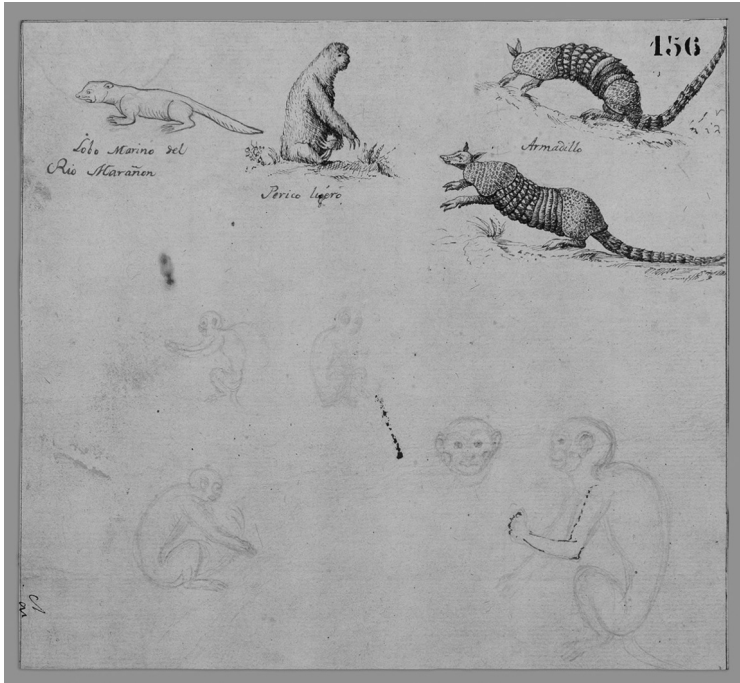 156
Lobo Marino del
Rio Marañon
Perico ligero
Armadillo